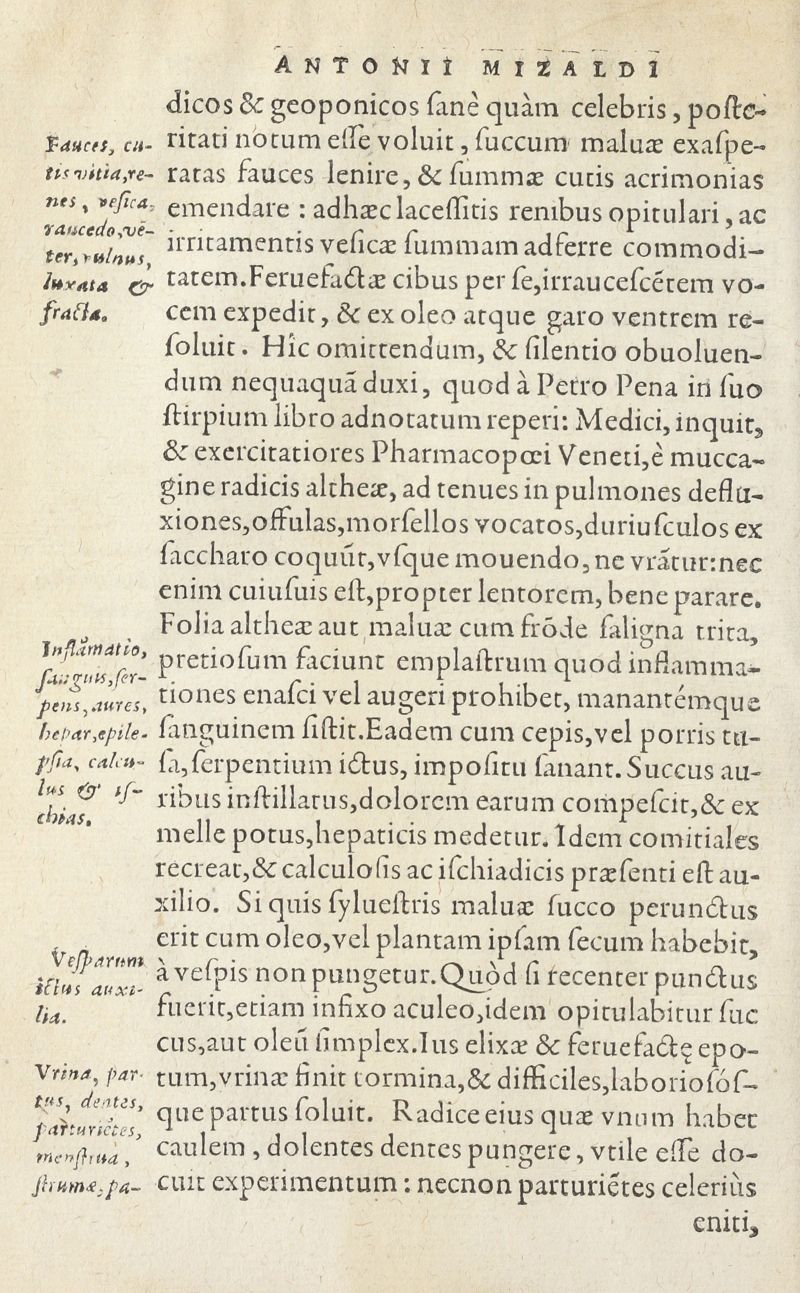 ANTONII MIZALDI
dicos & geoponicos ſanè quàm celebris, poſte-
ritati notum eſſe voluit, ſuccum maluæ exaſpe-
ratas fauces lenire, & ſummæ cutis acrimonias
emendare : adhæc laceſſitis renibus opitulari, ac
irritamentis veſicæ ſummam adferre commodi-
tatem. Feruefactæ cibus per ſe, irrauceſcẽtem vo-
cem expedit, & ex oleo atque garo ventrem re-
ſoluit. Hîc omittendum, & ſilentio obuoluen-
dum nequaquã duxi, quod à Petro Pena in ſuo
ſtirpium libro adnotatum reperi: Medici, inquit,
& exercitatiores Pharmacopœi Veneti, è mucca-
gine radicis altheæ, ad tenues in pulmones deflu-
xiones, offulas, morſellos vocatos, duriuſculos ex
ſaccharo coquũt, vſque mouendo, ne vrãtur: nec
enim cuiuſuis eſt, propter lentorem, bene parare.
Folia altheæ aut maluæ cum frõde ſaligna trita,
pretioſum faciunt emplaſtrum quod inflamma-
tiones enaſci vel augeri prohibet, manantémque
ſanguinem ſiſtit. Eadem cum cepis, vel porris tu-
ſa, ſerpentium ictus, impoſitu ſanant. Succus au-
ribus inſtillatus, dolorem earum compeſcit, & ex
melle potus, hepaticis medetur. Idem comitiales
recreat, & calculoſis ac iſchiadicis præſenti eſt au-
xilio. Si quis ſylueſtris maluæ ſucco perunctus
erit cum oleo, vel plantam ipſam ſecum habebit,
à veſpis non pungetur. Quòd ſi recenter punctus
fuerit, etiam infixo aculeo, idem opitulabitur ſuc
cus, aut oleũ ſimplex. Ius elixæ & feruefactę epo-
tum, vrinæ finit tormina, & difficiles, laborioſóſ-
que partus ſoluit. Radice eius quæ vnum habet
caulem, dolentes dentes pungere, vtile eſſe do-
cuit experimentum : necnon parturiẽtes celeriùs
eniti,
Fauces, cu-
tis vitia, re-
nes, veſica,
raucedo, vẽ-
ter, vulnus,
luxata &
fracta.
Inflãmatio,
ſanguis, ſer-
pens, aures,
hepar, epile-
pſia, calcu-
lus & iſ-
chias.
Veſparum
ictus auxi-
lia.
Vrina, par-
tus, dentes,
parturiẽtes,
menſtrua,
ſtrumæ, pa-